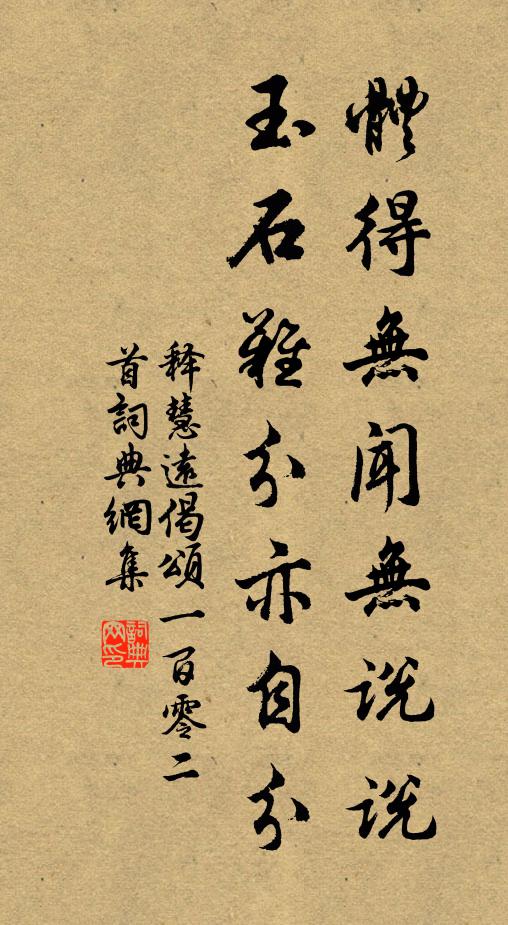 體得無聞無説説
玉石難分亦自分
释慧遠偈頌一百零二
首詞典網集
詞典
网印